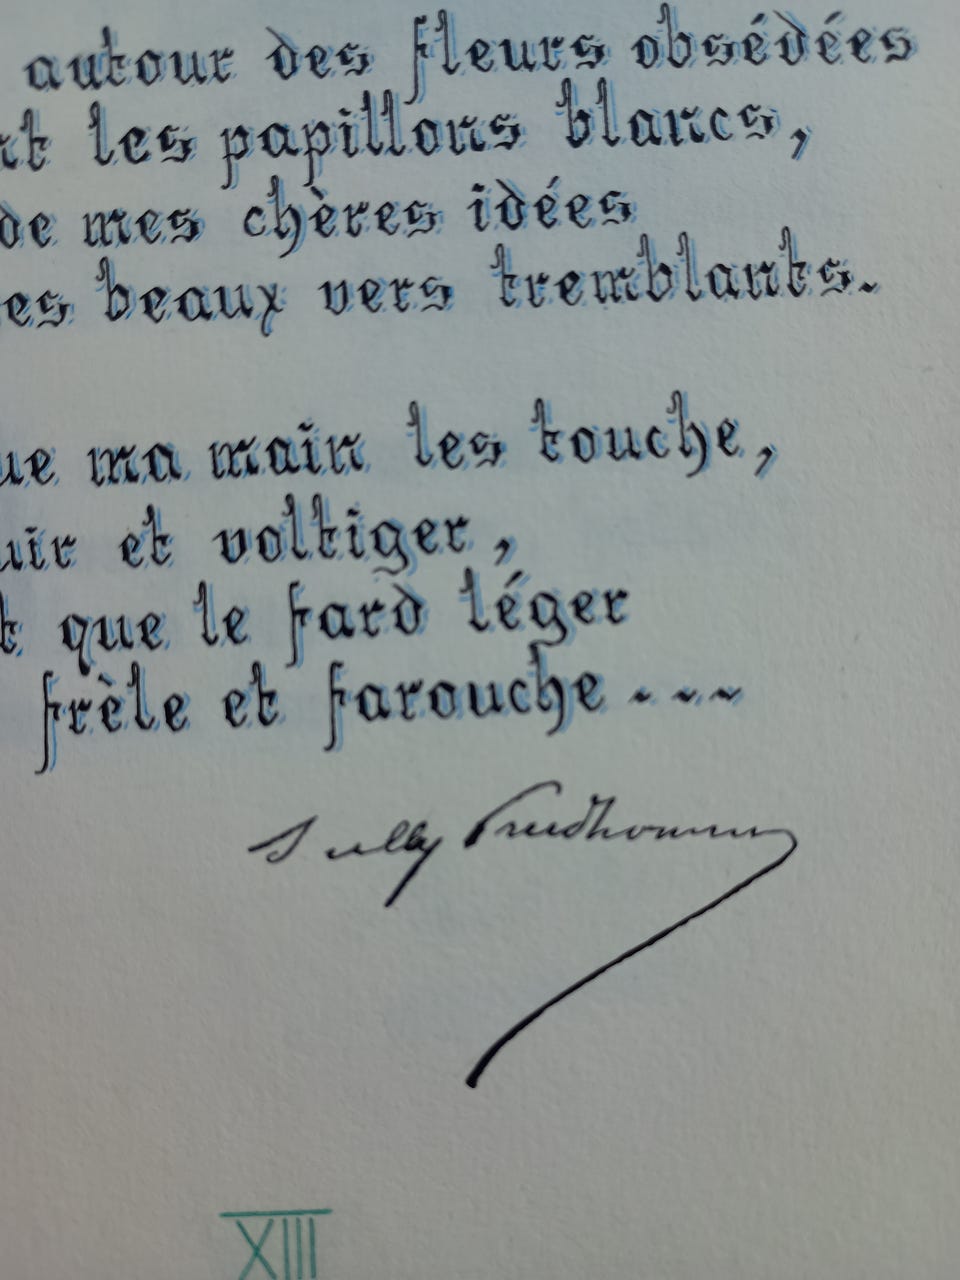 autour des fleurs obsédées
nt les papillons blancs,
de mes chères idées
es beaux vers tremblants.
ue ma main les touche,
uir et voltiger,
t que le fard léger
frèle et farouche....
Sully Prudhomme
XIII